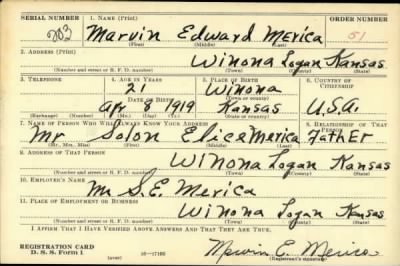 SERIAL NUMBER 1. NAME (Print) ORDER NUMBER
203 Marvin Edward Merica 51
(First) (Middle) (Last)
2. ADDRESS (Print)
Winona Logan Kansas
(Number and street or R. F. D. number) (Town) (County) (State)
3. TELEPHONE 4. AGE IN YEARS 5. PLACE OF BIRTH 6. COUNTRY OF CITIZENSHIP
21 Winona
DATE OF BIRTH (Town or county)
Apr 8 1919 Kansas U.S.A.
(Exchange) (Number) (Mo.) (Day) (Yr.) (State or country)
7. NAME OF PERSON WHO WILL ALWAYS KNOW YOUR ADDRESS 8. RELATIONSHIP OF THAT PERSON
Mr Solon Merica Father
(Mr., Mrs., Miss) (First) (Middle) (Last)
9. ADDRESS OF THAT PERSON
Winona Logan Kansas
(Number and street or R. F. D. number) (Town) (County) (State)
10. EMPLOYER'S NAME
Mr S.E. Merica
11. PLACE OF EMPLOYMENT OR BUSINESS
Winona Logan Kansas
(Number and street or R. F. D. number) (Town) (County) (State)
I AFFIRM THAT I HAVE VERIFIED ABOVE ANSWERS AND THAT THEY ARE TRUE.
REGISTRATION CARD
D. S. S. Form 1 (over) 16—17105 Marvin E. Merica
(Registrant's signature)